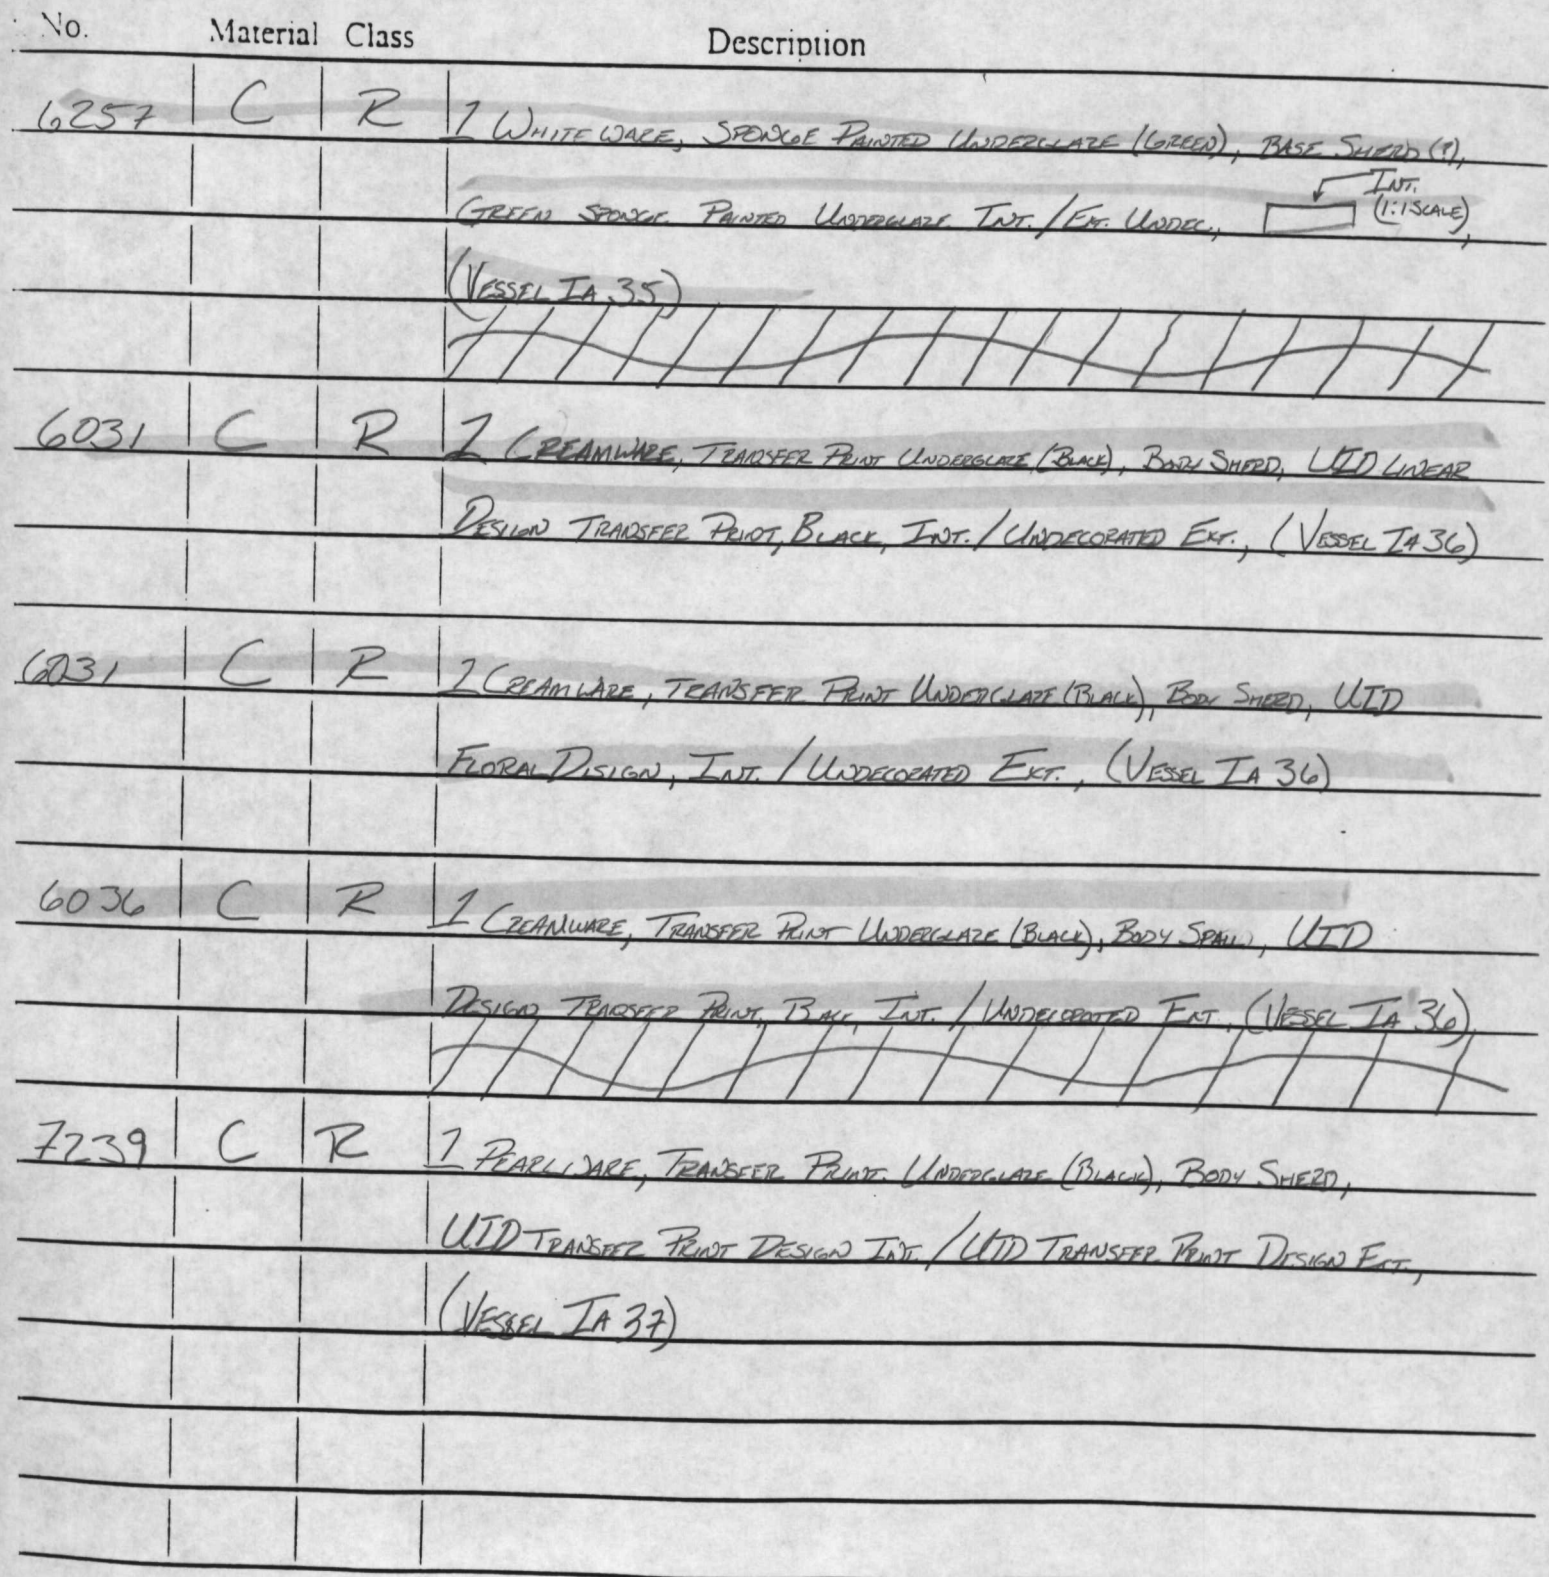 No. Material Class Description
6257 C R 1 WHITEWARE, SPONGE PAINTED UNDERGLAZE (GREEN), BASE SHERD (?),
INT.
GREEN SPONGE PAINTED UNDERGLAZE INT. / EXT. UNDEC., (1:1 SCALE),
(VESSEL IA 35)
6031 C R 1 CREAMWARE, TRANSFER PRINT UNDERGLAZE (BLACK), BODY SHERD, UID LINEAR
DESIGN TRANSFER PRINT, BLACK, INT. / UNDECORATED EXT., (VESSEL IA 36)
6031 C R 1 CREAMWARE, TRANSFER PRINT UNDERGLAZE (BLACK), BODY SHERD, UID
FLORAL DISIGN, INT. / UNDECORATED EXT., (VESSEL IA 36)
6036 C R 1 CREAMWARE, TRANSFER PRINT UNDERGLAZE (BLACK), BODY SPALL, UID
DESIGN TRANSFER PRINT, INT. / UNDECORATED EXT., (VESSEL IA 36)
7239 C R 1 PEARLWARE, TRANSFER PRINT UNDERGLAZE (BLACK), BODY SHERD,
UID TRANSFER PRINT DESIGN INT. / UID TRANSFER PRINT DESIGN EXT.,
(VESSEL IA 37)